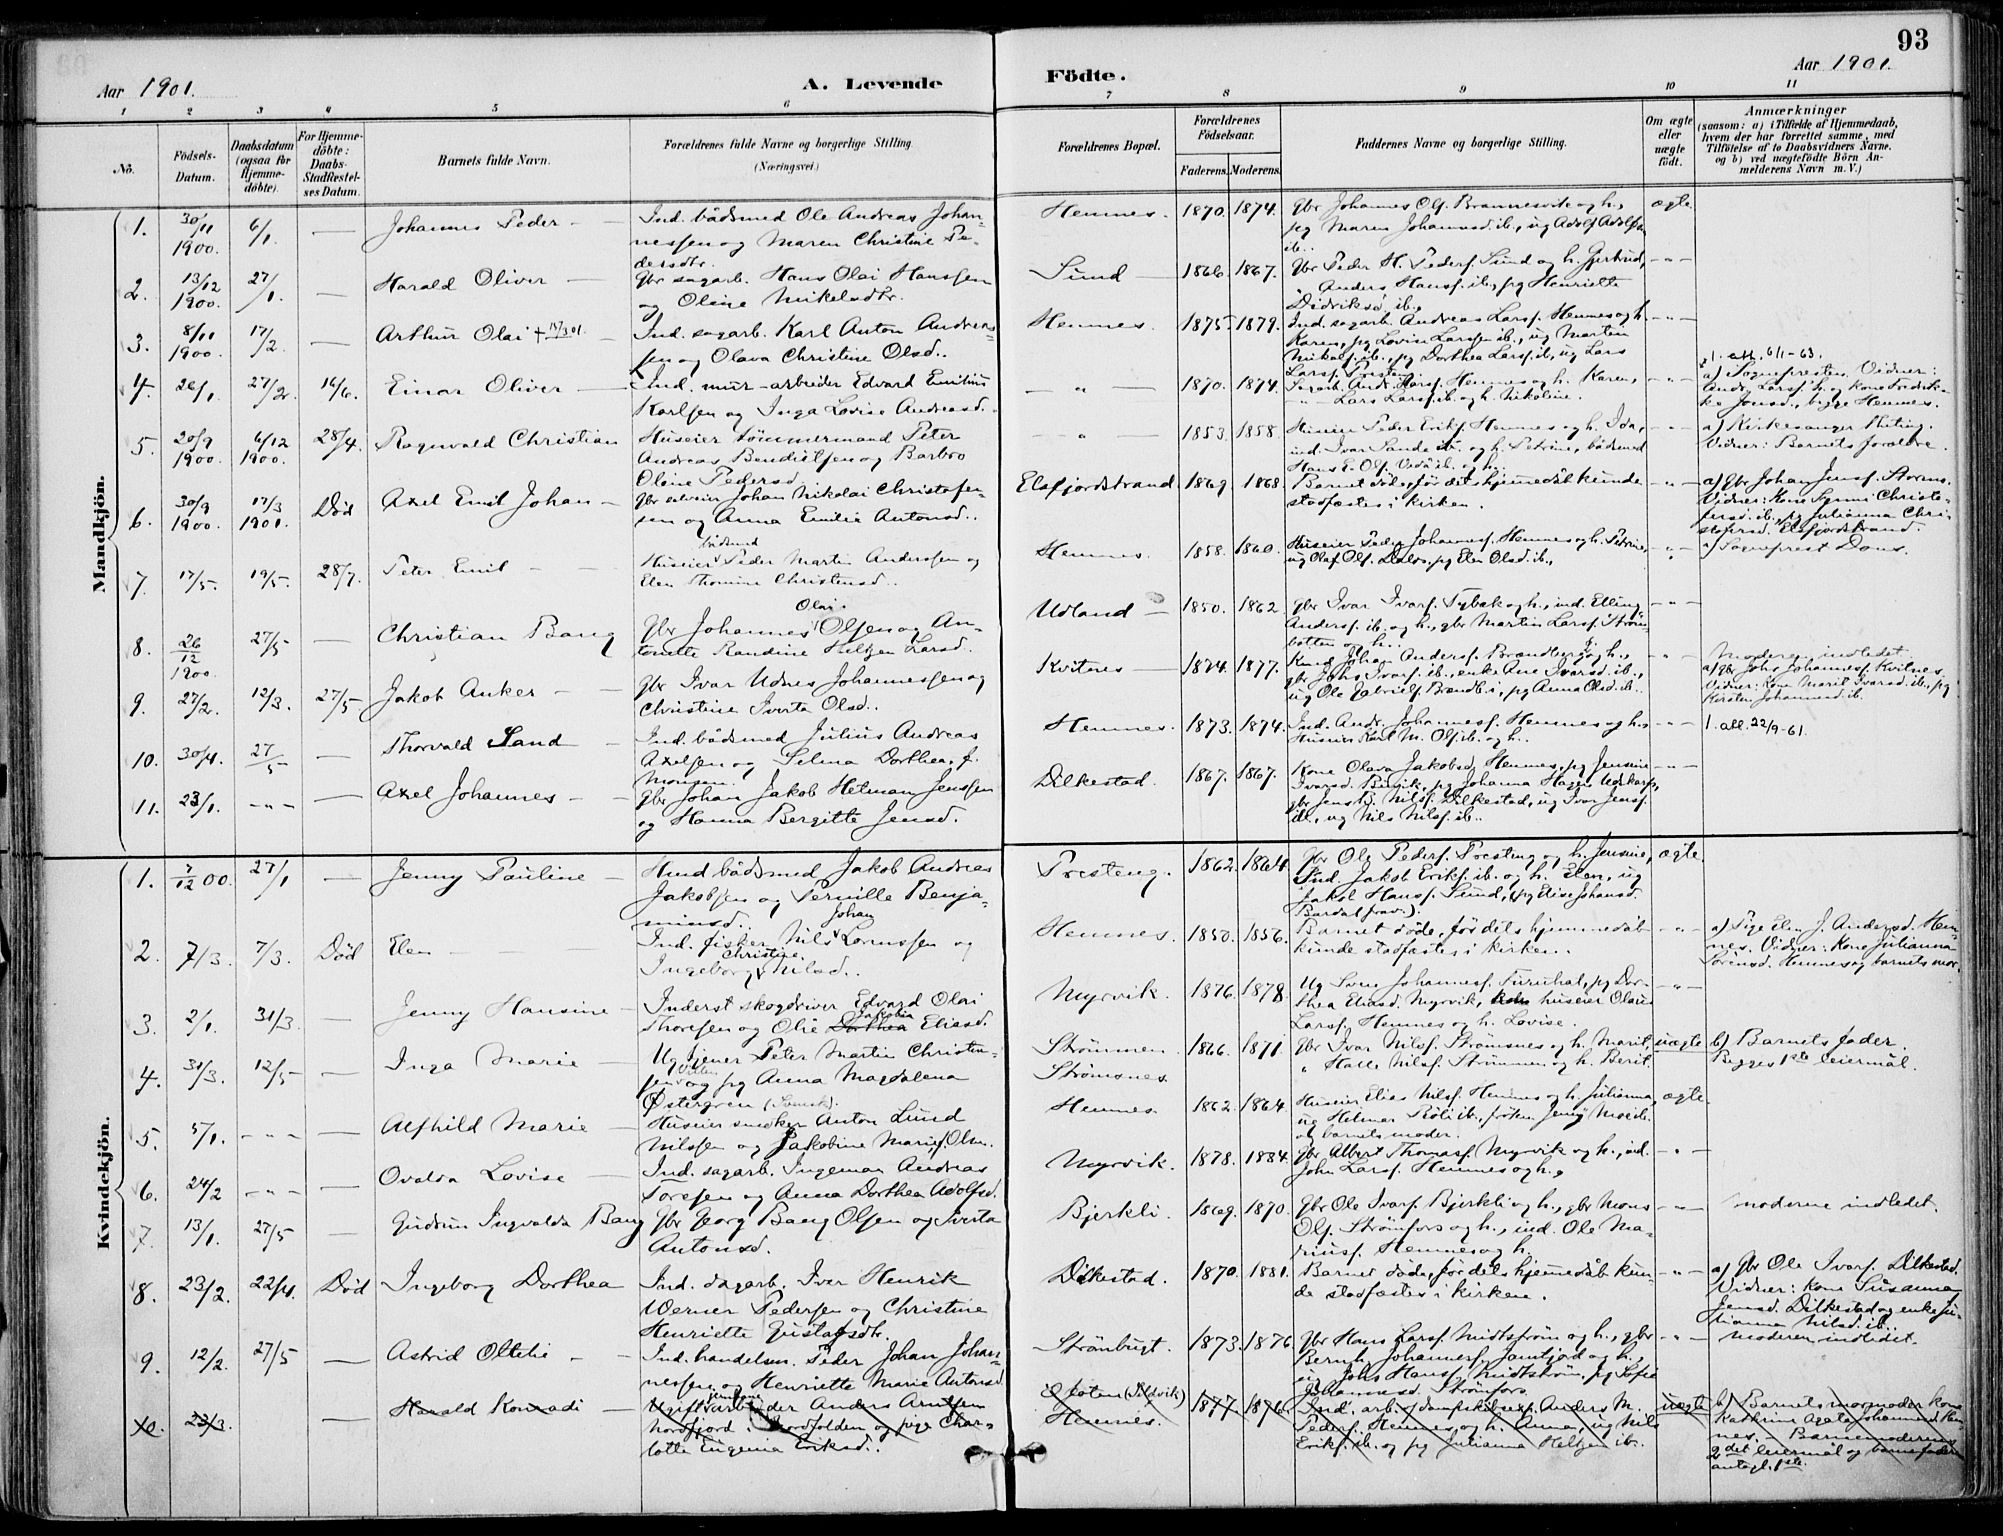 93
Aar 1901.
A. Levende
Födte.
Aar 1901.
1 2 3 4 5 6 7 8 9 10 11
No.
Födsels-
Datum.
Daabsdatum
(ogsaa for
Hjemme-
döbte).
For Hjemme-
döbte:
Daabs-
Stadfæstel-
ses Datum.
Barnets fulde Navn.
Forældrenes fulde Navne og borgerlige Stilling.
(Næringsvei.)
Forældrenes Bopæl.
Forældrenes
Födselsaar.
Faderens. Moderens.
Faddernes Navne og borgerlige Stilling.
Om ægte
eller
uægte
født.
Anmærkninger
(saasom: a) i Tilfælde af Hjemmedaab,
hvem der har forrettet samme, med
Tilföielse af to Daabsvidners Navne.
og b) ved uægtefödte Börn An-
melderens Navn m. V.)
Mandkjön.
1. 30/11 1900. 6/1. — Johannes Peder —
Ind. bådsmed Ole Andreas Johan-
nessen og Maren Christine Pe-
dersdtr.
Hemnes. 1870. 1874.
Gbr Johannes O.G. Brannesvik og h.,
pg Maren Johannesd. ib., ug Adolf Adolfs.
ib..
ægte
2. 13/12 1900. 27/1. — Harald Oliver —
Gbr sagarb. Hans Olai Hanssen
og Oline Mikelsdtr.
Sund — 1866. 1867.
Gbr Peder H. Peders. Sund og h. Gjertrud,
Anders Hansf. ib., pg Henriette
Didriksd. ib.,
3. 8/11 1900. 17/2. — Arthur Olai
Ind. sagarb. Karl Anton Andreas-
sen og Olava Christine Olsd..
Hemnes. 1875. 1879.
Ind. sagarb. Andreas Larsf. Hemnes og h.
Karen, pg Lovise Larssen ib., ug Martin
Nikolsf. ib., pg Dorthea Larsf. ib., ug Lars
Larsf. Presteng.
4. 26/1. 27/2. 16/6. Einar Oliver —
Ind. mur-arbeider Edvard Emilius
Karlsen og Inga Lovise Andreasd.
" — 1870. 1874.
Sagarb. Andr. Larsf. Hemnes og h. Karen,
Lars Larsf. ib. og h. Nikoline.
1. att. 6/1-63.
a) Sognepresten. Vidner:
Andr. Larsf. ib. og kone Fredrik-
ke Jonsd., begge Hemnes.
5. 20/9 1900. 6/12 1900. 28/4. Ragnvald Christian
Huseier tömmermand Peter
Andreas Bendiktsen og Barbro
Oline Pedersd.
" — 1853. 1858.
Huseier Peder Eriksf. Hemnes og h. Ida,
ind. Ivar Sande ib. og h. Petrine, bådsmed
Hans E. Olsf. ib. og h.
a) Kirkesanger
Vidner: Barnets forældre.
6. 30/9 1900. 17/3 1901. Död Axel Emil Johan —
Gbr Johan Nikolai Christofer-
sen og Anna Emilie Antonsd..
Elsfjordstrand. 1869. 1868.
Barnet döde, för dets hjemmedåb kunde
stadfæstes i kirken.
a) Gbr Johan Jensf. Storm.
Vidner: Kone Synni Christo-
fersd. ib., pg Julianna Chri-
stofersd. Elsfjordstrand.
7. 17/5. 19/5. 28/7. Peter Emil —
bådsmed
Huseier Peder Martin Anderssen og
Elen Thomine Christensd..
Hemnes. 1858. 1860.
Huseier Peder Johannesf. Hemnes og h. Petrine,
ug Olaf Olf. pg Elen Olsd. ib.,
a) Sogneprest Dons.
8. 26/12 1900. 27/5. — Christian Bang
Olai
Gbr Johannes Olsen og An-
tonette Randine Heltzen Larsd.
Utland — 1850. 1862.
Gbr Ivar Ivarf. Tybæk og h., ind. Elling
Andersf. ib. og h., gbr Martin Larsf. Ström-
botten og h..
9. 27/2. 12/3. 27/5. Jakob Anker —
Gbr Ivar Udnes Johannessen og
Christine Iverta Olsd..
Kvitnes — 1874. 1877.
Kone Johan Andersf. Brendberg og h.,
gbr Johs Ivarf. ib., enke Ane Ivarsd. ib.,
ug Ole Gabrielf. Brendb., pg Anna Olsd. ib..
Moderen indledet.
a) Gbr Johs Johannesf. Kvitnes.
Vidner: Kone Marit Ivarsd. ib., pg
Kirsten Johannesd. ib.
10. 30/4. 27/5 — Thorvald Sand —
Ind. bådsmed Julius Andreas
Axelsen og Selma Dorthea, f.
Monsen.
Hemnes. 1873. 1874.
Ind. Andr. Johannesf. Hemnes og h.,
Huseier Karl M. Olf. ib. og h..
1. att. 22/9-61.
11. 23/1. -"- — Axel Johannes —
Gbr Johan Jakob Helman Jenssen
og Hanna Bergitte Jensd.
Dilkestad. 1867. 1867.
Kone Olava Jakobsd. Hemnes, pg Jensine
Ivarsd. Bisvik, pg Johanna Hagen
gbr Jens B. Nilsf. Dilkestad, ug Ivar Jensf.
ib., ug Nils Nilsf. ib..
Kvindekjön.
1. 7/12 00. 27/1 — Jenny Pauline —
bådsmed Jakob Andreas
Jakobsen og Pernille Benja-
minsd..
Presteng. 1862. 1864.
Gbr Ole Pedersf. Presteng og h. Jensine,
Ind. Jakob Eriksf. ib. og h. Elen, ug
Jakob Hansf. Sund, (pg Elise Johansd.
Bardal frav.).
ægte
2. 7/3. 7/3. Död Elen —
Johan
Ind. fisker Nils Lorenssen og
Christine
Ingeborg Nilsd..
Hemnes. 1850. 1856.
Barnet döde, för dets hjemmedåb
kunde stadfæstes i kirken.
a) Pige Elen J. Andersd. Hem-
nes. Vidner: Kone Julianna
Sörensd. Hemnes og barnets mor.
3. 2/1. 31/3. — Jenny Hansine —
Inderst skogdriver Edvard Olai
Jakobia
Thoresen og Olie Dorthea Eliasd.
Myrvik. 1876. 1878.
Ug Sven Johannesf. Furuhat, pg Dor-
thea Eliasd. Myrvik, huseier Olaus
Larsf. Hemnes og h. Lovise.
4. 31/3. 12/5 — Inga Marie —
Ug tjener Peter Martin Christen-
sen og pg Anna Magdalena
Östergren (Svensk).
Strömmen
Strömsnes. 1866. 1871.
Gbr Ivar Nilsf. Strömsnes og h. Marit,
" Halle Nilsf. Strömmen og h. Berit.
uægte
b) Barnets fader.
Begges 1ste leiermål.
5. 5/1. -"- — Alfhild Marie —
Huseier snedker Anton Lund
Nilssen og Jakobine Marie, f. Olsn.
Hemnes. 1862. 1864.
Huseier Elias Nilsf. Hemnes og h. Julianna,
ug Helmer Röli ib., fröken Jenny Moe ib.
og barnets moder.
ægte.
6. 24/2 -"- — Ovalda Lovise —
Ind. sagarb. Ingeman Andreas
Toresen og Anna Dorthea Adolfsd.
Myrvik. 1878. 1884.
Gbr Albert Thomasf. Myrvik og h., ind.
John Larsf. Hemnes og h.,
7. 13/1. 27/5 — Gudrun Ingvalda Bang
Gbr Georg Bang Olsen og Iverta
Antonsd.
Bjerkli. 1869. 1870.
Gbr Ole Ivarf. Bjerkli og h., gbr Mons
Olf. Strömfors og h., ind. Ole Ma-
riusf. Hemnes og h.
Moderen indledet.
8. 23/2. 22/4. Död Ingeborg Dorthea
Ind. sagarb. Iver Henrik
Werner Pedersen og Christine
Henriette Gustafsdtr.
Dilkestad. 1870. 1881.
Barnet döde, för dets hjemmedåb kun-
de stadfæstes i kirken.
a) Gbr Ole Ivarf. Dilkestad.
Vidner: Kone Susanna
Jensd. Dilkestad og enke Ju-
lianna Nilsd. ib..
9. 12/2. 27/5 — Astrid Ottelie —
Ind. handelsm. Peder Johan Johan-
nessen og Henriette Marie Antonsd.
Strömbugt. 1873. 1876.
Gbr Hans Larsf. Midtström og h., gbr
Bernh. Johannesf. Jamtjord og h.,
ug Johs Hansf. Midtström, pg Sofie
Johannesd. Strömfors.
Moderen indledet.
10. 23/3. — Harald Konradi —
Ugift arbeider Anders Arntsen
Nordfjord i Nordfolden og pige Char-
lotte Eugenia Eriksd..
Ofoten (Sildvik)
Hemnes. 1877. 1876.
Ind. arb. Anders M.
Pedersf. Hemnes og h. Anna, ug Nils
Eriksf. ib. og pg Julianna Heltzen ib.
uægte
b) Barnets mormoder Kone
Kathrine Agate Johannesd. Hem-
nes. — Barnemoderens
2det leiermål og barnefaderens
antagel. 1ste.